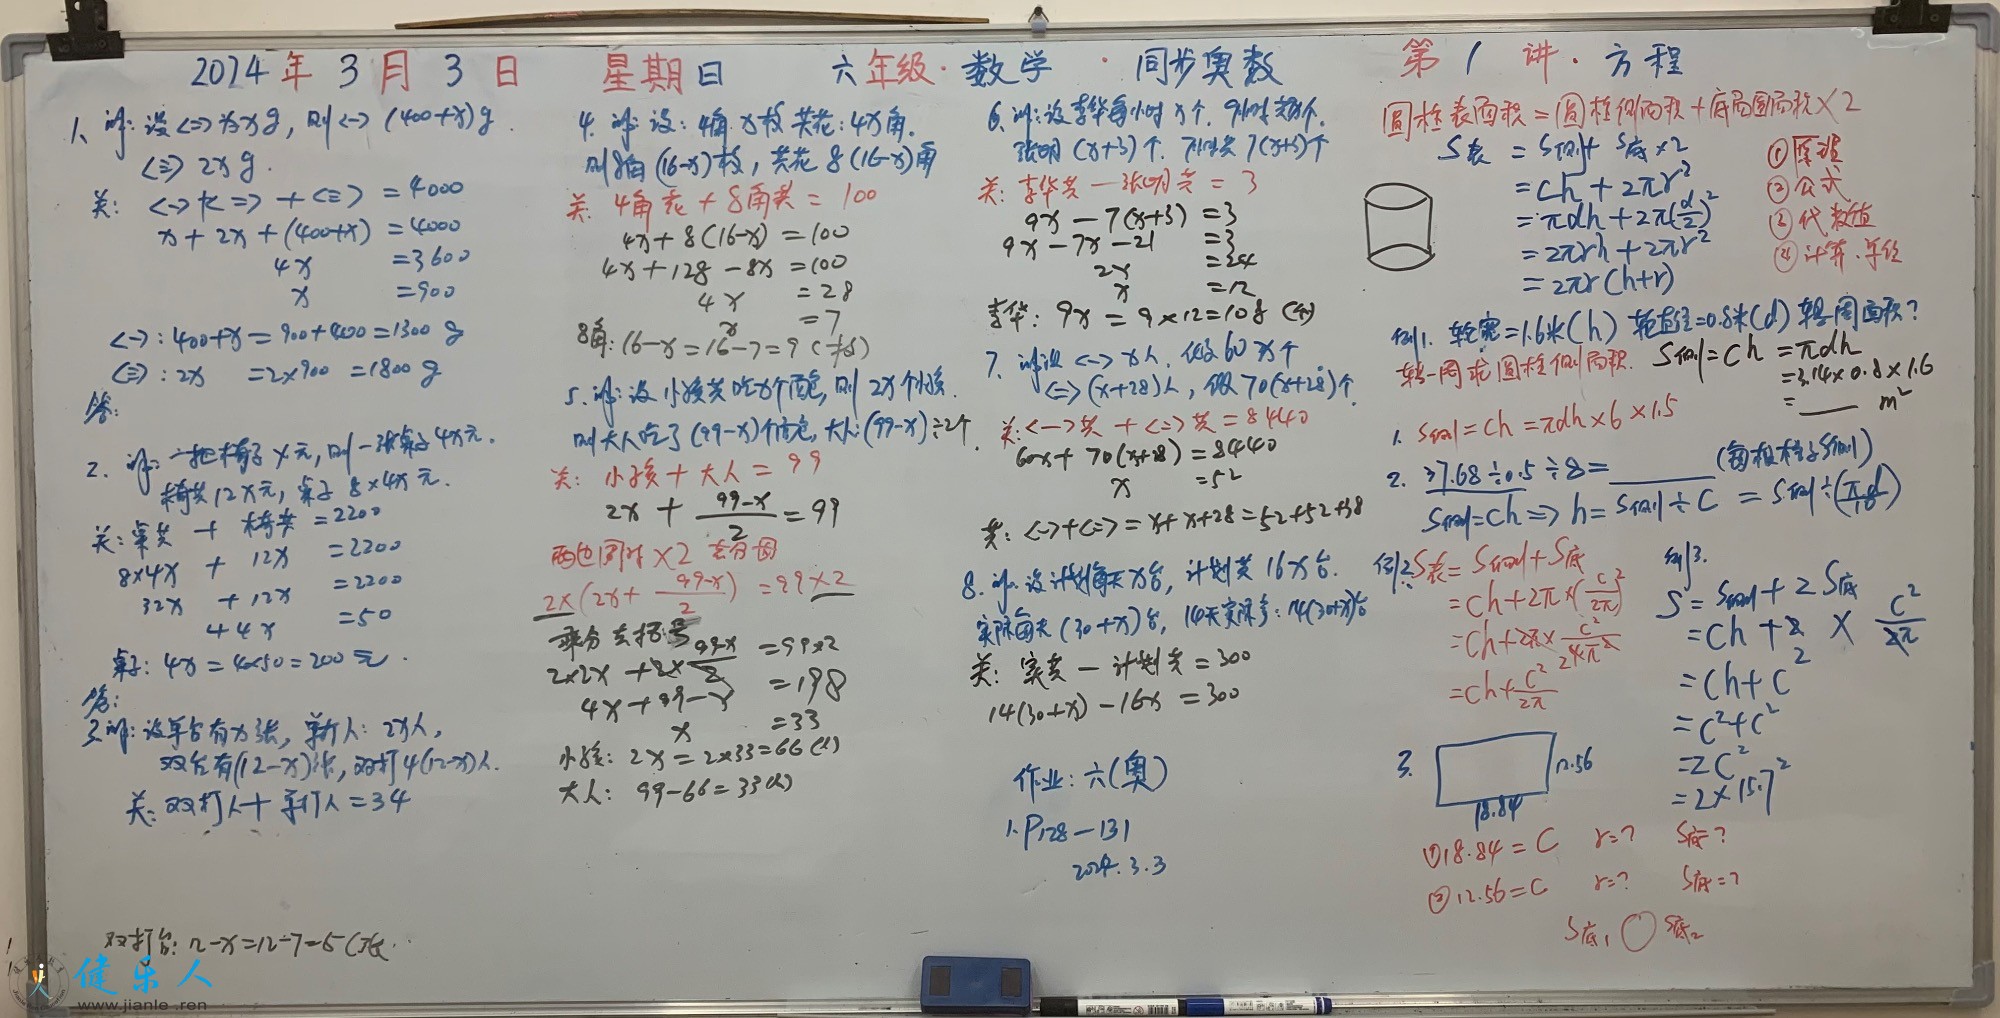 2024年3月3日 星期日 六年级·数学·同步奥数 第1讲·方程
1、解:设<一>为xg,则<二>(400+x)g
<三>2xg.
关: + <三> = 4000
x+2x+(400+x) =4000
4x =3600
x =900
<一>:400+x=900+400=1300g
<三>:2x =2×900 =1800g
答:
2. 解:一把椅子x元,则一张桌子4x元.
椅共12x元,桌子8×4x元.
关:桌共 + 椅共 =2200
8×4x + 12x =2200
32x +12x =2200
44x =50
桌子:4x=4×50=200元.
答:
3.解:设单台有x张,单打人:2x人,
双台有(12-x)张,双打4(12-x)人.
关:双打人+单打人=34
双打台:12-x=12-7=5(张
4.解:设:4角x枚共花:4x角.
则8角(16-x)枚,共花8(16-x)角
关:4角花+8角共=100
4x+8(16-x)=100
4x+128-8x=100
4x =28
x =7
8角:16-x=16-7=9(枚)
5.解:设小孩共吃x个面包,则2x个小孩.
则大人吃了(99-x)个面包,大人:(99-x)÷2个
关:小孩+大人=99
2x+\frac{99-x}{2}=99
两边同时×2去分母
2×(2x+\frac{99-x}{2})=99×2
乘分去括号
2×2x+2×\frac{99-x}{2}=99×2
4x+99-x =198
x =33
小孩:2x=2×33=66(人)
大人:99-66=33(人)
6.解:设李华每小时x个,9小时共9x个.
张明(x+3)个.7小时共7(x+3)个
关:李华共-张明共=3
9x-7(x+3)=3
9x-7x-21 =3
2x =24
x =12
李华:9x=9×12=108(个)
7.解:设<一>x人,做60x个
<二>(x+28)人,做70(x+28)个.
关:<一>共+<二>共=8440
60x+70(x+28)=8440
x =52
共:<一>+<二>=x+x+28=52+52+28
8.解.设计划每天x台,计划共16x台.
实际每天(30+x)台,14天实际多:14(30+x)台
关:实共-计划共=300
14(30+x)-16x=300
作业:六(奥)
1.P128-131
2024.3.3
圆柱表面积=圆柱侧面积+底局圆面积×2
S表 =S侧+S底×2
=Ch+2πr²
=πdh+2π(\frac{d}{2})²
=2πrh+2πr²
=2πr(h+r)
①原理
②公式
③代数值
④计算.单位
例1.轮宽=1.6米(h) 轮直径=0.8米(d) 转一周面积?
转一周求圆柱侧面积. S侧=Ch =πdh
=3.14×0.8×1.6
=___ m²
1. S侧=Ch=πdh×6×1.5
2. 37.68÷0.5÷8=____ (每根柱子S侧)
S侧=Ch⇒h=S侧÷C=S侧÷(πd)
例2:S表=S侧+S底
=Ch+2π×(\frac{C}{2π})²
=Ch+2π×\frac{C²}{4π²}
=Ch+\frac{C²}{2π}
例3.
S=S侧+2S底
=Ch+2×\frac{C²}{2π}
=Ch+C²
=C²+C²
=2C²
=2×15.7²
3. 12.56
18.84
①18.84=C r=? S底?
②12.56=C r=? S底=?
S底₁○S底₂
健乐人
www.jianle.ren